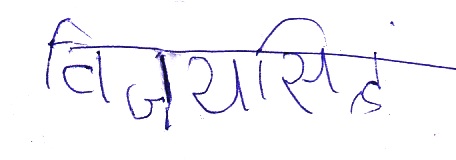 विजयसिंह